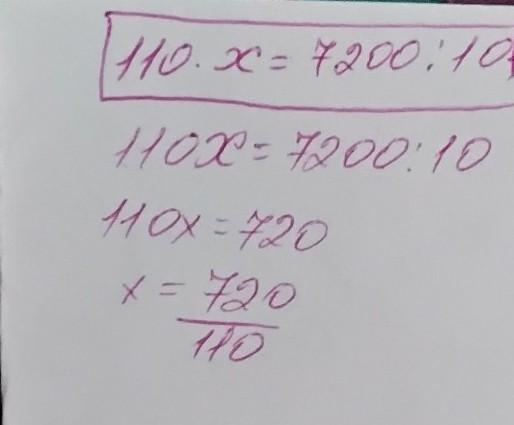 110. x = 7200:10
110x = 7200:10
110x = 720
x = 720
110